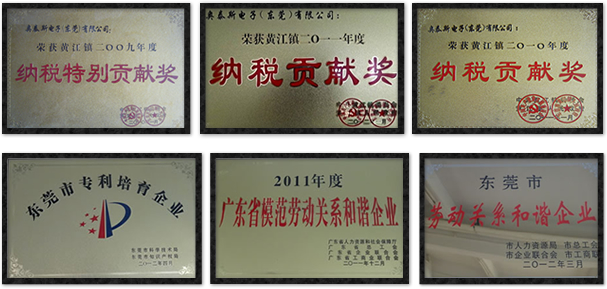 奥泰斯电子(东莞)有限公司:
荣获黄江镇二〇〇九年度
纳税特别贡献奖
奥泰斯电子(东莞)有限公司:
荣获黄江镇二〇一一年度
纳税贡献奖
奥泰斯电子(东莞)有限公司:
荣获黄江镇二〇一〇年度
纳税贡献奖
东莞市专利培育企业
东莞市科学技术局
东莞市知识产权局
二〇一二年四月
2011年度
广东省模范劳动关系和谐企业
广东省人力资源和社会保障厅
广东省总工会
广东省企业联合会
广东省工商业联合会
二〇一一年十二月
东莞市
劳动关系和谐企业
市人力资源局 市总工会
市企业联合会 市工商联
二〇一二年三月